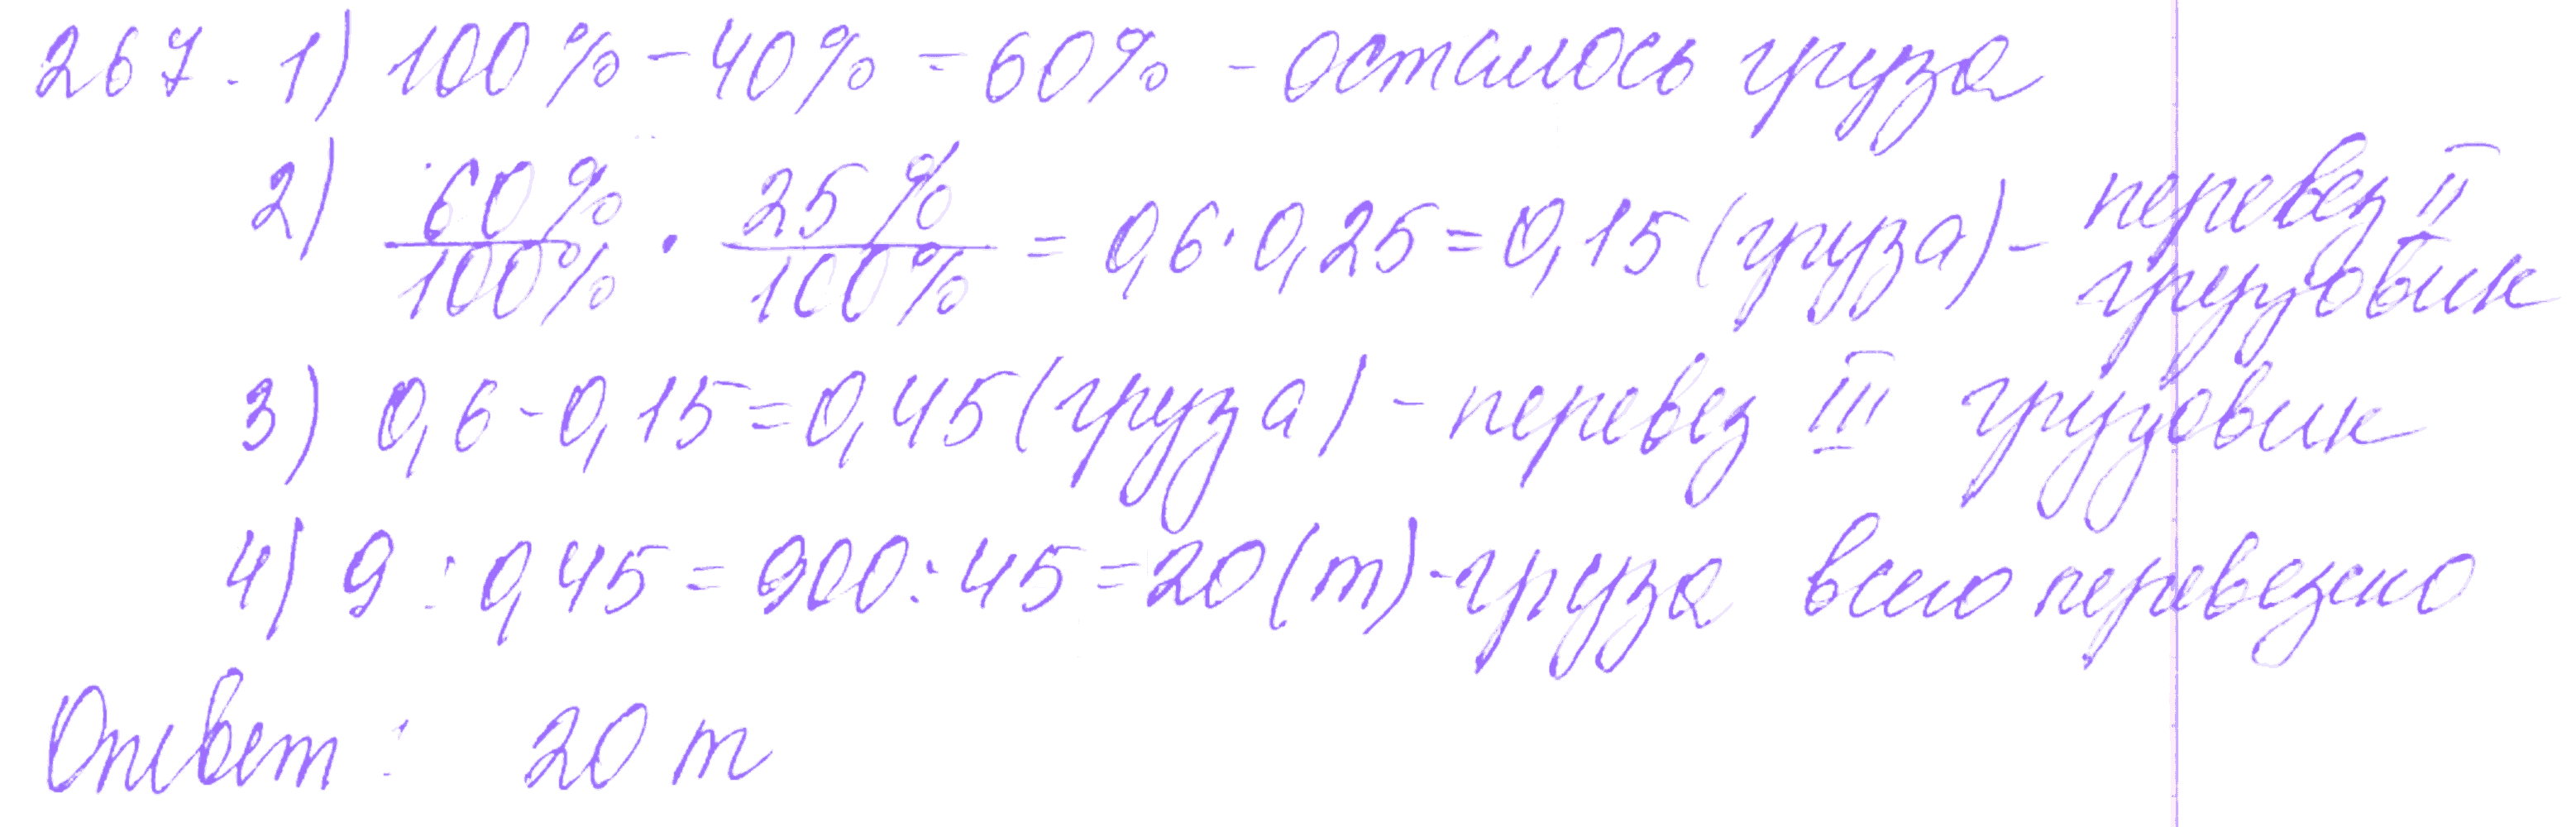 267. 1) 100% - 40% = 60% - осталось груза
2) 60%/100% · 25%/100% = 0,6 · 0,25 = 0,15 (груза) - перевез II грузовик
3) 0,6 - 0,15 = 0,45 (груза) - перевез III грузовик
4) 9 : 0,45 = 900 : 45 = 20 (т) - груза всего перевезено
Ответ: 20 т